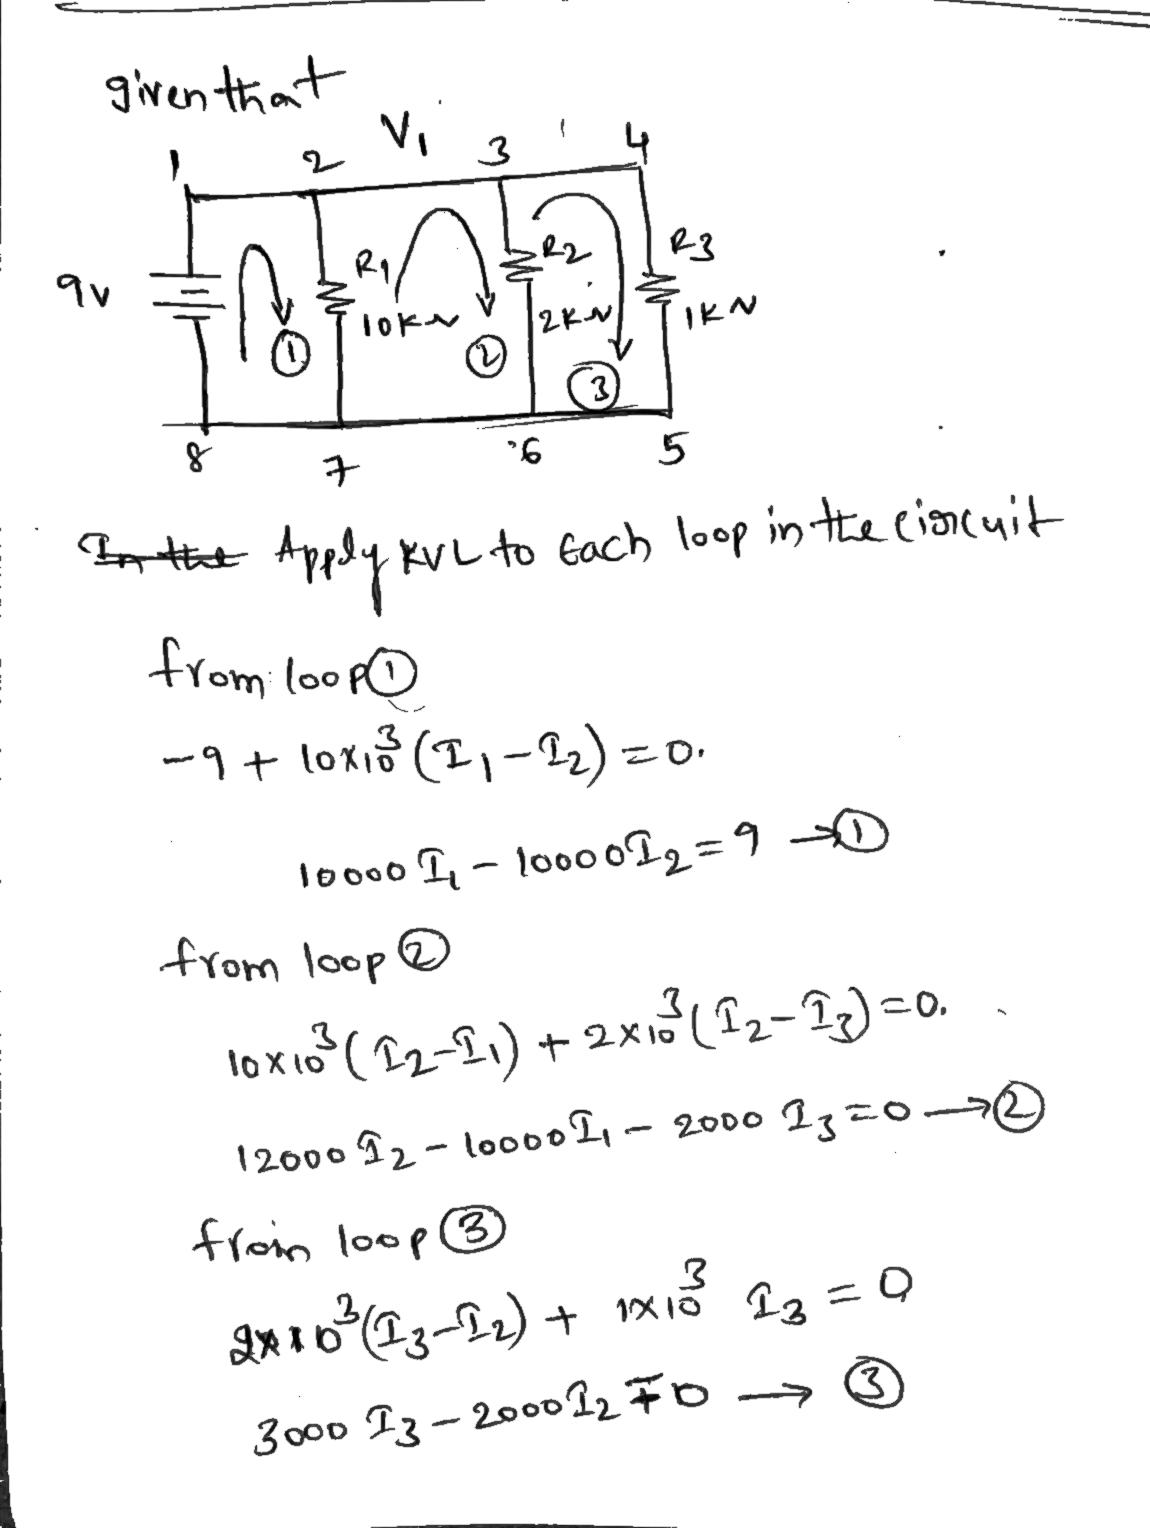 given that
V1
1 2 3 4
9V
R1
10KN
R2
2KN
R3
1KN
① ② ③
8 7 6 5
In the Apply KVL to Each loop in the circuit
from loop ①
-9 + 10×10³ (I1 - I2) = 0.
10000 I1 - 10000 I2 = 9 → ①
from loop ②
10×10³ (I2 - I1) + 2×10³ (I2 - I3) = 0.
12000 I2 - 10000 I1 - 2000 I3 = 0 → ②
from loop ③
2×10³ (I3 - I2) + 1×10³ I3 = 0
3000 I3 - 2000 I2 = 0 → ③